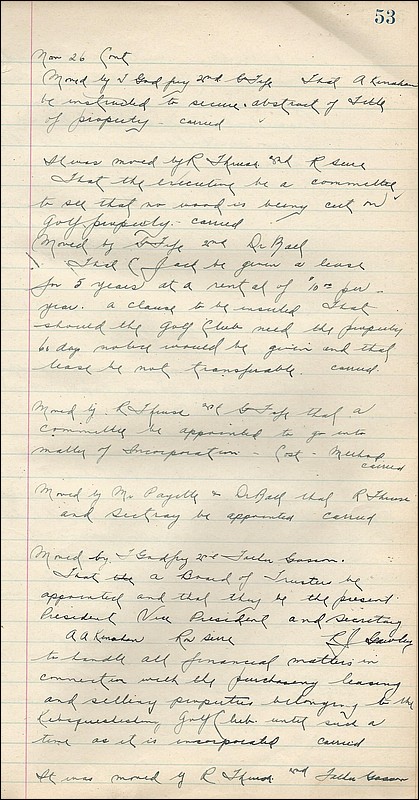 53
Nov 26 Cont
Moved by T Godfrey 2nd G Fife That A Kinahan
be instructed to secure abstract of Title
of property - carried
It was moved by R Thruse 2nd R Seve
That the executive be a committee
to see that no wood is being cut on
Golf property. - carried
Moved by G Fife 2nd Dr Bael
That C Jack be given a lease
for 5 years at a rental of $10.00 per
year. a clause to be inserted that
should the Golf Club need the property
60 day notice would be given and that
lease be not transferable. carried.
Moved by. R Thruse 2nd G Fife that a
committee be appointed to go into
matter of Incorporation - Cost - Method
carried
Moved by Mr Payette & Dr Bael that R Thruse
and Sectray be appointed carried
Moved by. T Godfrey 2nd Father Gascon.
That the a Board of Trustees be
appointed and that they be the present
President Vice President and Secretary
A A Kinahan R Seve R J
to handle all financial matters in
connection with the purchasing leasing
and selling properties belonging to the
Golf Club until such a
time as it is incorporated carried
It was moved by R Thruse 2nd Father Gascon